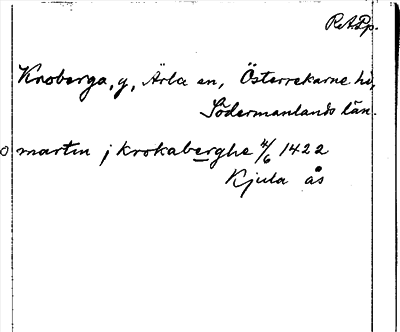 RAPp.
Knoberga, g, Ärla sn, Österrekarne hd,
Södermanlands län.
o martin j krokaberghe 4/6 1422
Kjula ås